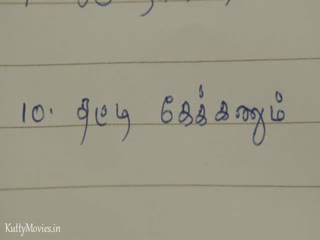 10. தட்டி கேக்கணும்
KuttyMovies.in